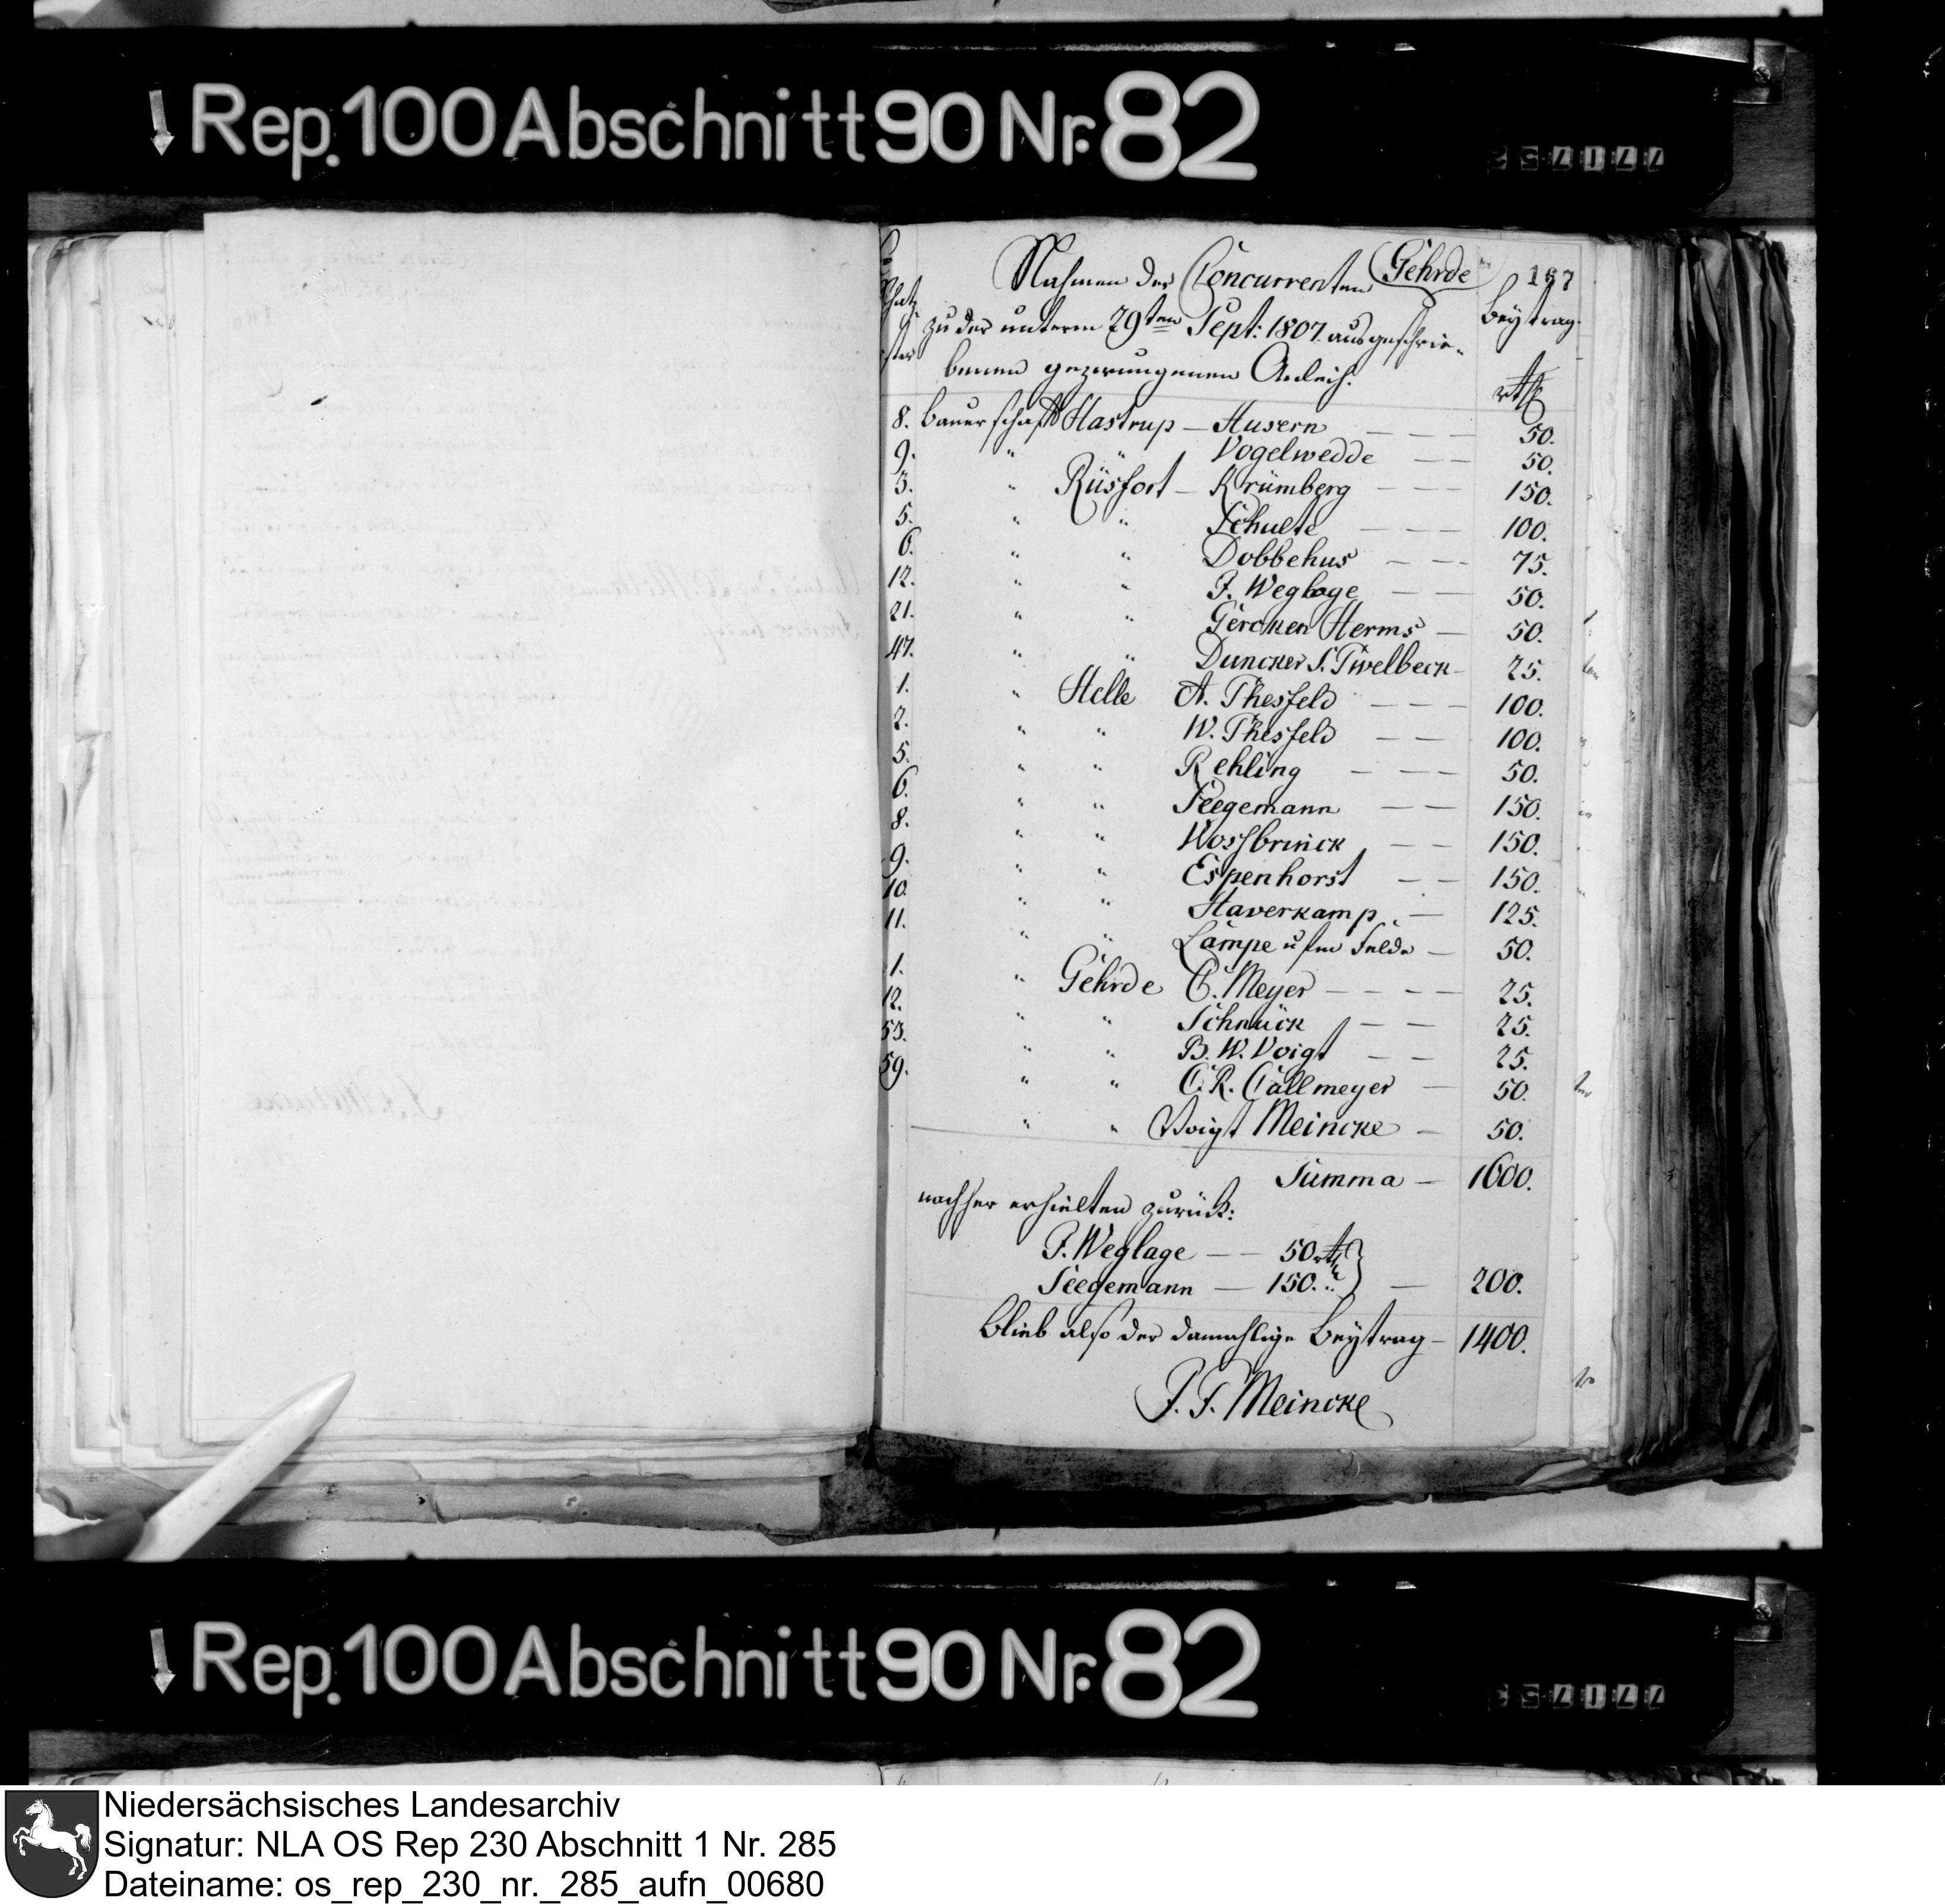 Rep. 100 Abschnitt 90 Nr. 82
Nahmen der Concurrenten Gehrde 187
zu der unterm 29ten Sept: 1807. ausgeschrie-
benen gezwungenen Anleih.
Beytrag.
rthl
8. Bauerschaft Hastrup – Husern – – – 50.
9. " " Vogelwedde – – 50.
3. " Rüsfort – Krümberg – – – 150.
5. " " Schulte – – – 100.
6. " " Dobbehus – – – 75.
12. " " F. Weglage – – 50.
21. " " Gercken Herms – 50.
47. " " Duncker S. Twelbeck – 25.
1. " Helle A. Thesfeld – – – 100.
2. " " W. Thesfeld – – 100.
5. " " Rehling – – – 50.
6. " " Seegemann – – 150.
8. " " Vossbrinck – – 150.
9. " " Espenhorst – – 150.
10. " " Haverkamp. – 125.
11. " " Lampe ufm Felde – 50.
1. " Gehrde C. Meyer – – – – 25.
12. " " Schnück – – 25.
53. " " B. W. Voigt – – 25.
59. " " C. R. Callmeyer – 50.
" " Voigt Meincke – 50.
Summa – 1600.
nachher erhielten zurück:
F. Weglage – – 50 rthl
Seegemann – 150. " } – 200.
Blieb also der damahlige Beytrag – 1400.
J. F. Meincke
Rep. 100 Abschnitt 90 Nr. 82
Niedersächsisches Landesarchiv
Signatur: NLA OS Rep 230 Abschnitt 1 Nr. 285
Dateiname: os_rep_230_nr._285_aufn_00680